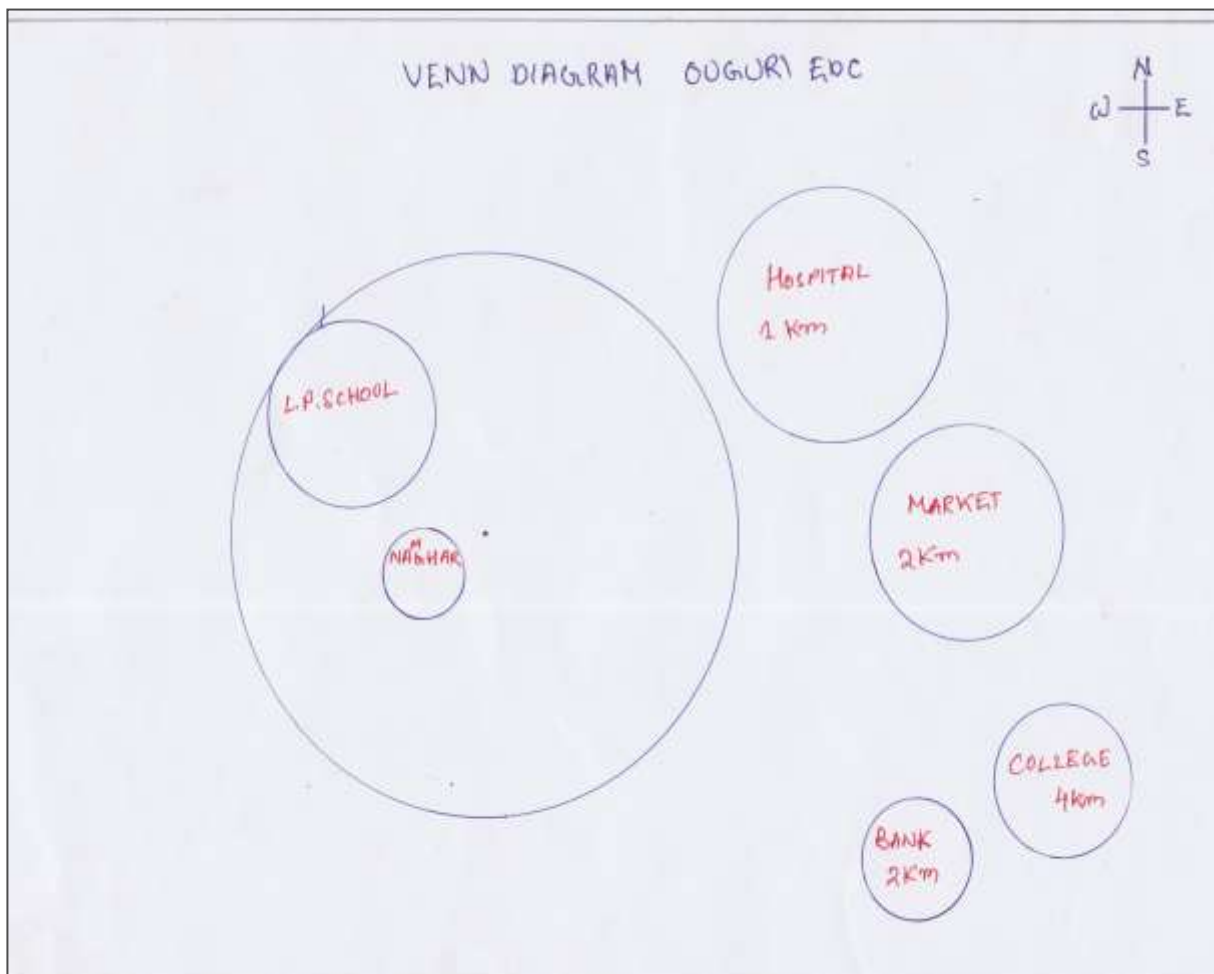 VENN DIAGRAM OUGURI EDC
N
W E
S
HOSPITAL
1 Km
L.P. SCHOOL
MARKET
2Km
NAMGHAR
COLLEGE
4km
BANK
2Km